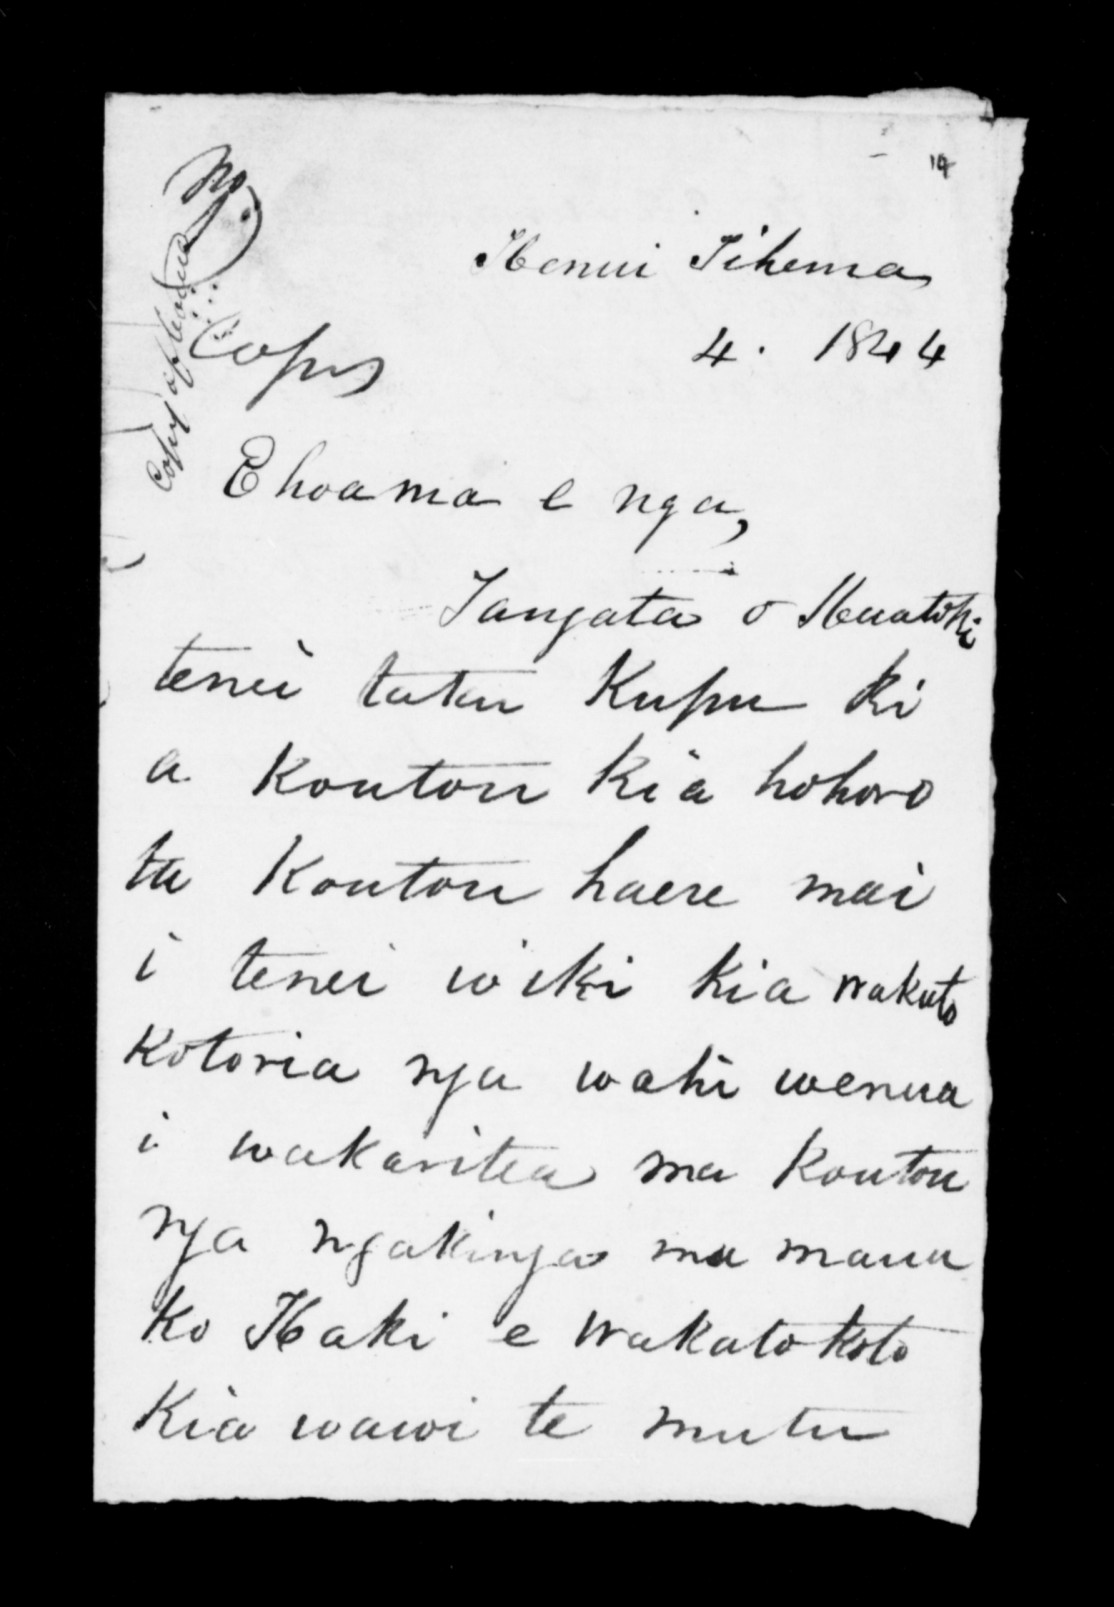 19
No.
Copy of
Henui Tihema
Copy
4. 1844
E hoa ma e nga,
Tangata o Huatoki
tenei taku Kupu ki
a Koutou kia hohoro
ta Koutou haere mai
i tenei wiki kia wakato
kotoria nga wahi wenua
i wakaritea ma Koutou
nga ngakinga ma mana
ko Haki e wakatokoto
Kia wawi te mutu